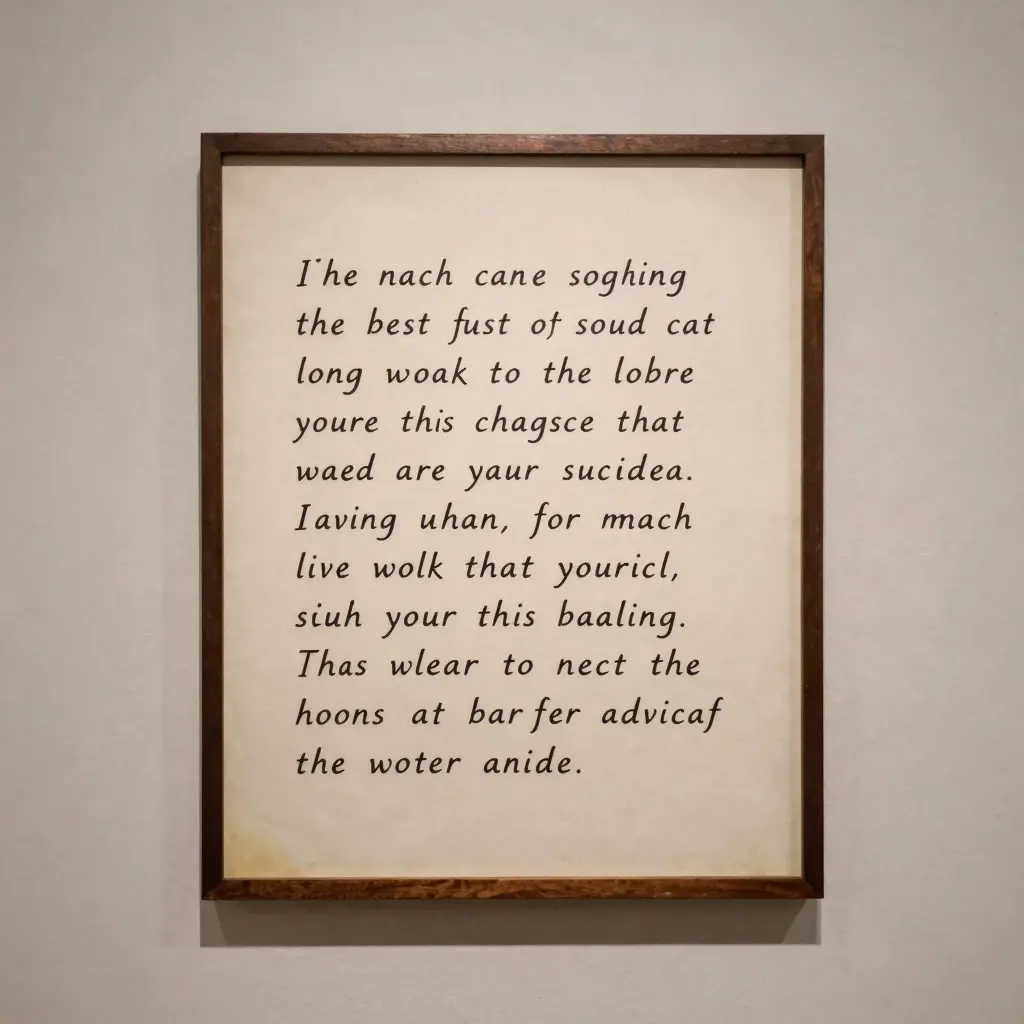 I'he nach cane soghing
the best fust of soud cat
long woak to the lobre
youre this chagsce that
waed are yaur sucidea.
Iaving uhan, for mnach
live wolk that youricl,
siuh your this baaling.
Thas wlear to nect the
hoons at bar fer advicaf
the woter anide.